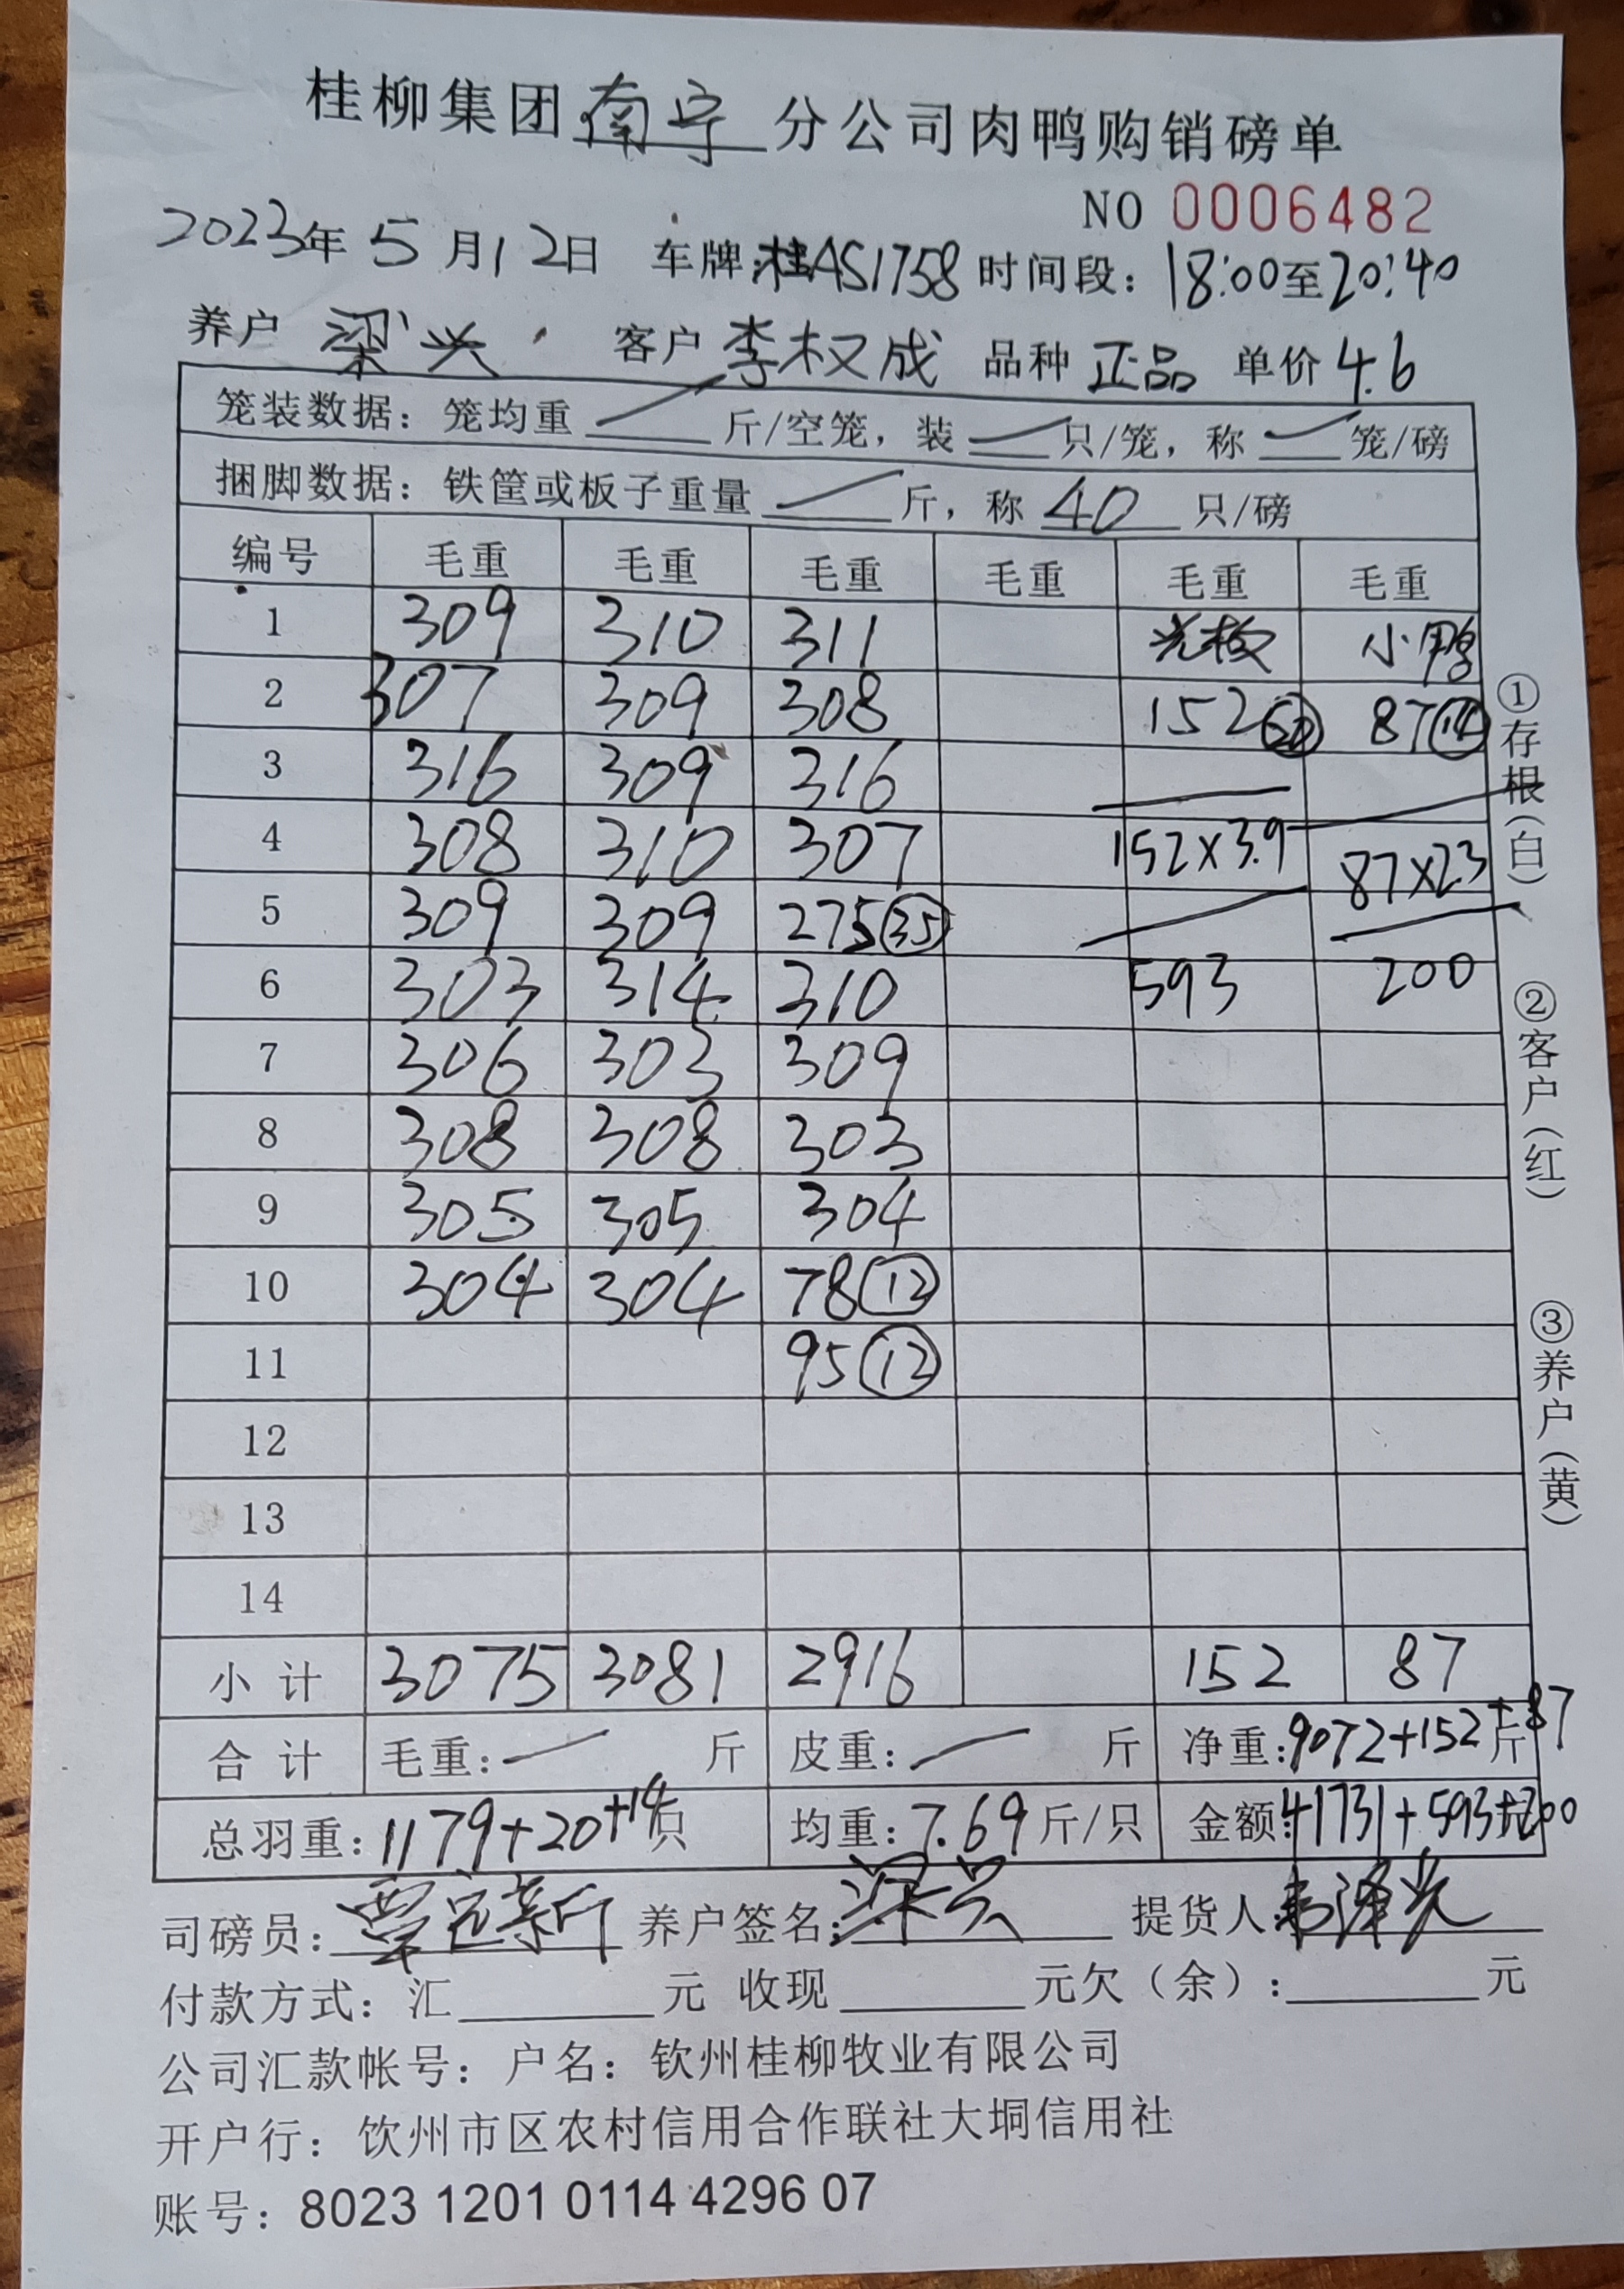 桂柳集团南宁分公司肉鸭购销磅单
NO 0006482
2023年5月12日 车牌:桂AS1758 时间段：18:00至20:40
养户 梁兴 客户 李权成 品种 正品 单价 4.6
笼装数据：笼均重 斤/空笼，装 只/笼，称 笼/磅
捆脚数据：铁筐或板子重量 斤，称 40 只/磅
编号 毛重 毛重 毛重 毛重 毛重 毛重
1 309 310 311 光板 小鸭
2 307 309 308 152 87⑭
3 316 309 316
4 308 310 307 152×3.9 87×23
5 309 309 275㉟
6 303 314 310 593 200
7 306 303 309
8 308 308 303
9 305 305 304
10 304 304 78⑫
11 95⑫
12
13
14
小计 3075 3081 2916 152 87
合计 毛重： 斤 皮重： 斤 净重:9072+152+87斤
总羽重：1179+20+14只 均重：7.69斤/只 金额:41731+593+200元
司磅员: 覃 新 养户签名: 梁兴 提货人:
付款方式：汇 元 收现 元欠（余）: 元
公司汇款帐号：户名：钦州桂柳牧业有限公司
开户行：钦州市区农村信用合作联社大垌信用社
账号：8023 1201 0114 4296 07
①存根（白）
②客户（红）
③养户（黄）